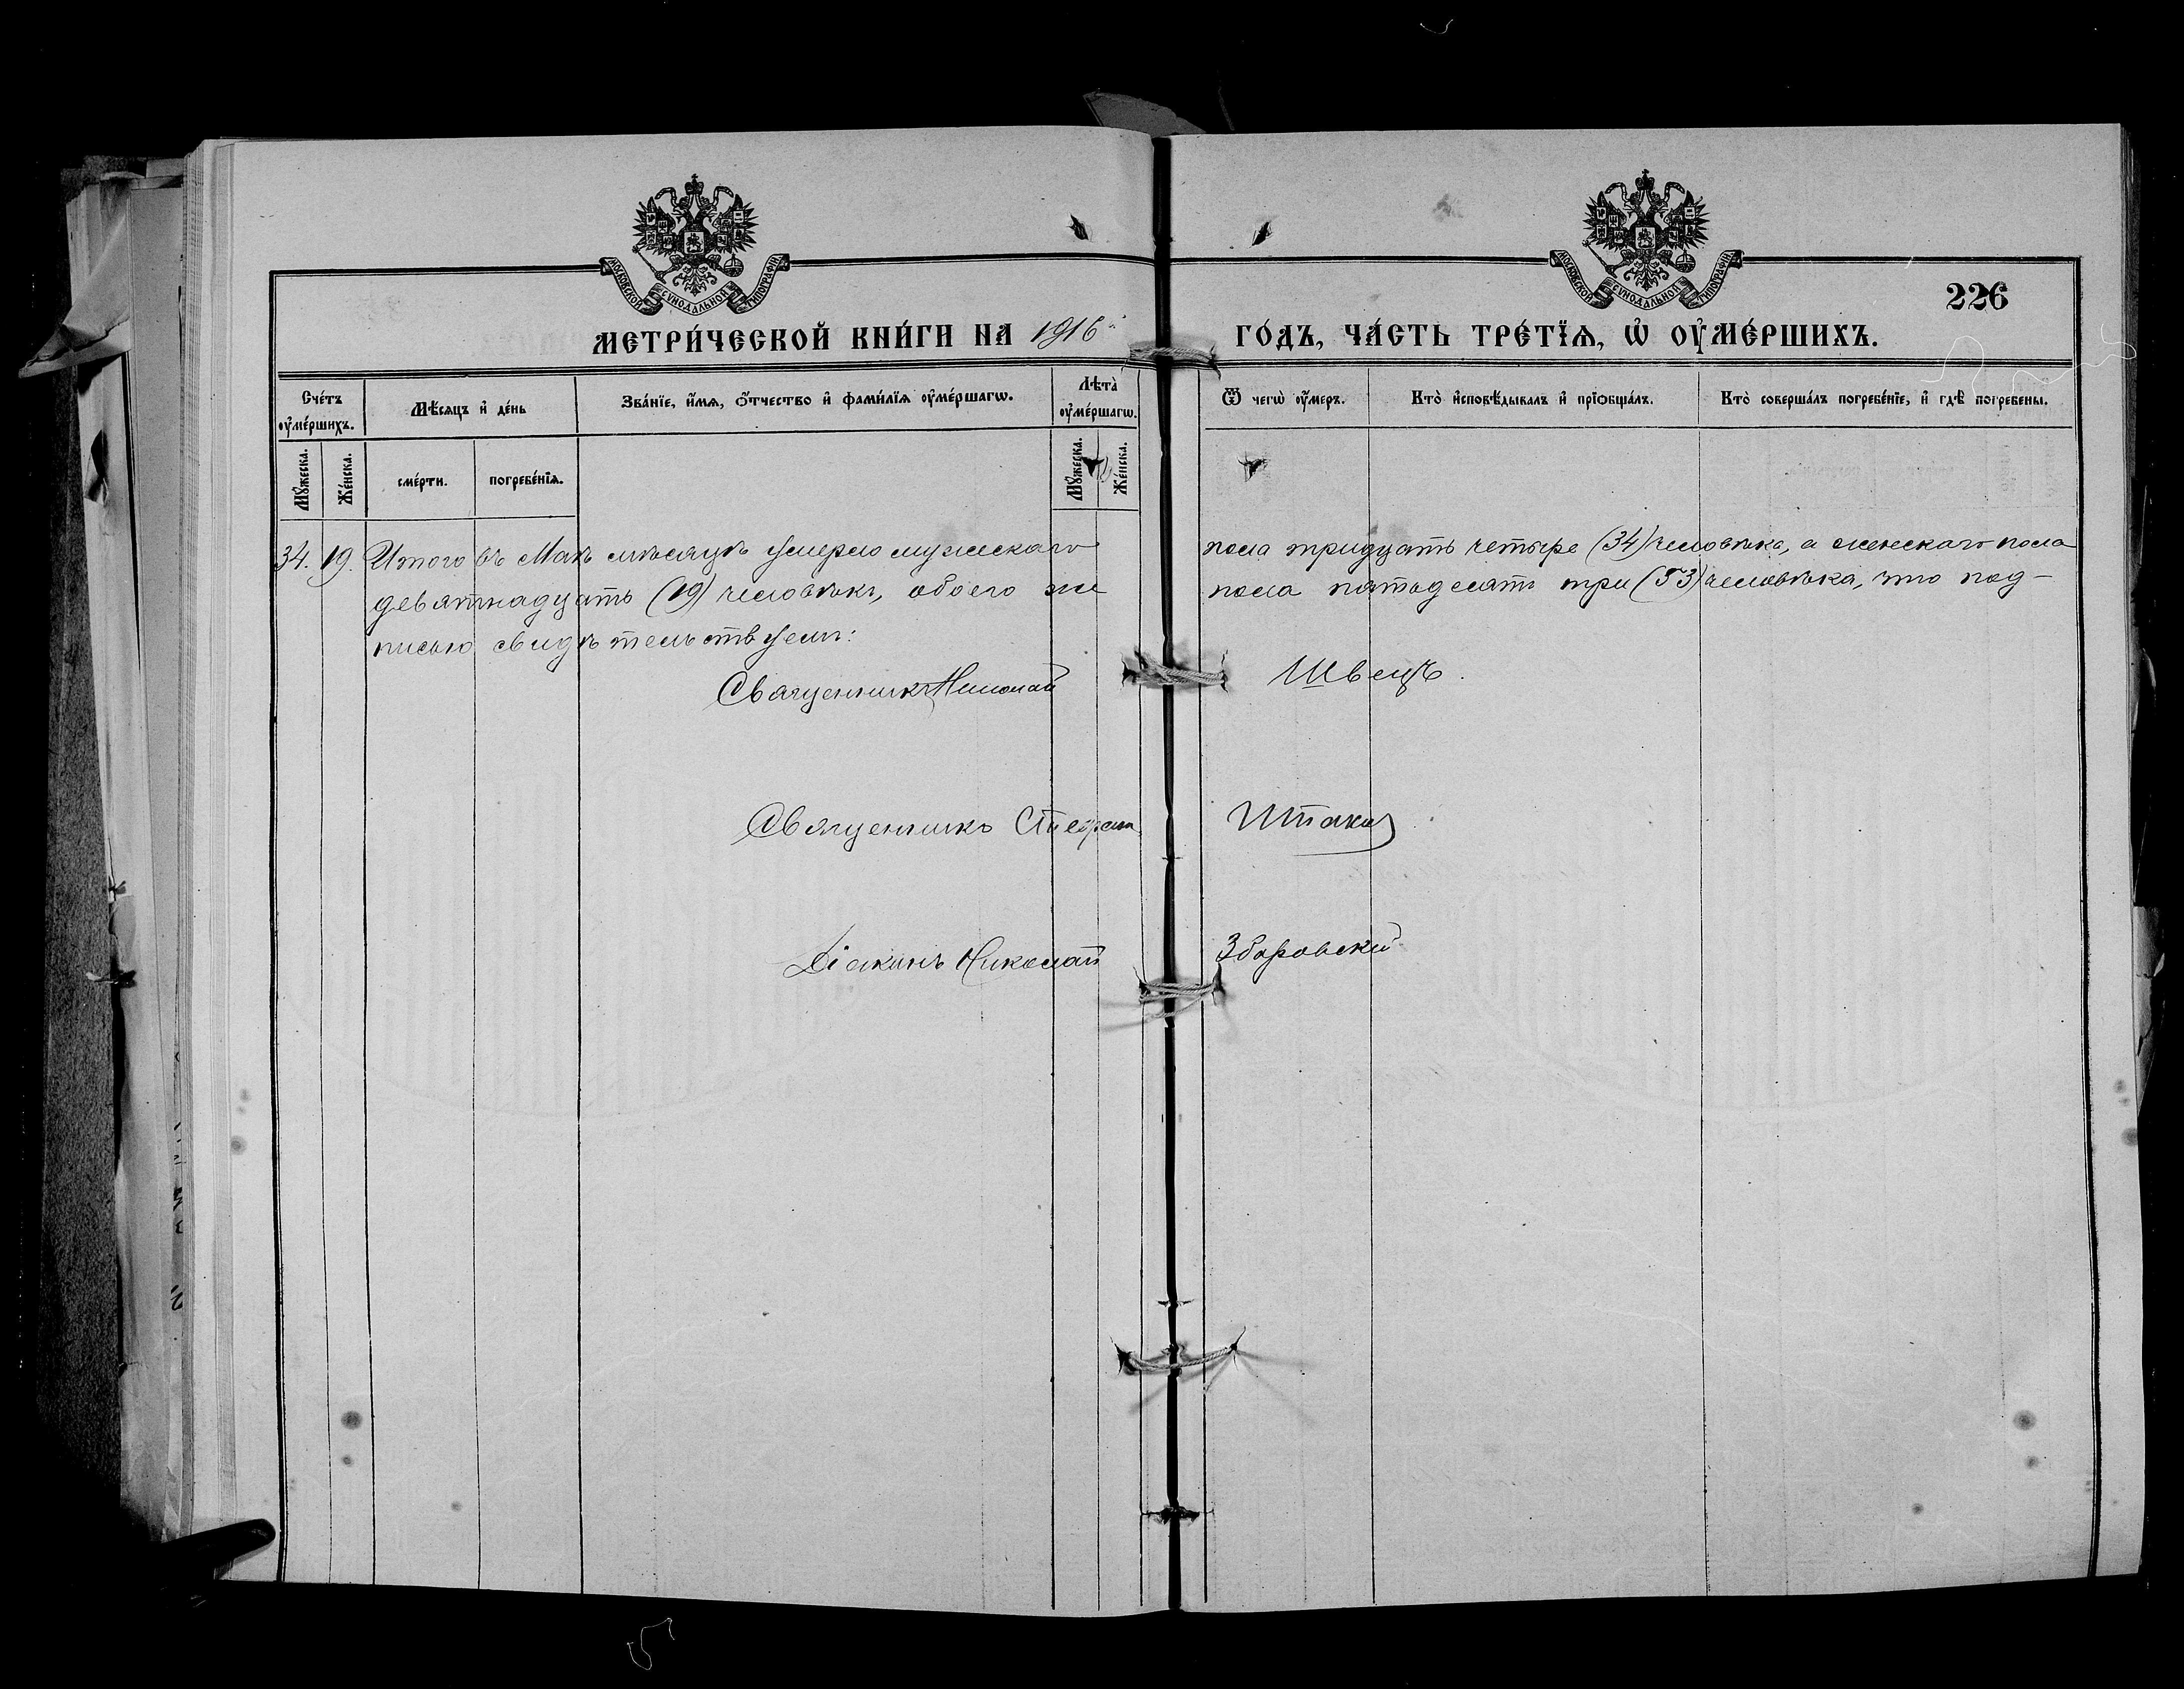 МОСКОВСКОЙ СѴНОДАЛЬНОЙ ТИПОГРАФІИ
МОСКОВСКОЙ СѴНОДАЛЬНОЙ ТИПОГРАФІИ
226
МЕТРИ́ЧЕСКОЙ КНИ́ГИ НА 1916 й ГО́ДЪ, ЧА́СТЬ ТРЕ́ТЇѦ, Ѡ҆ ОУ҆МЕ́РШИХЪ.
Сче́тъ оу҆ме́ршихъ.
Мѣ́сяцъ и҆ де́нь
Зва́нїе, и҆́мѧ, ѻ҆́тчество и҆ фами́лїѧ оу҆ме́ршагѡ.
Лѣта̀ оу҆ме́ршагѡ.
Ѿ чегѡ̀ оу҆́меръ.
Кто̀ и҆сповѣ́дывалъ и҆ прїѻбща́лъ.
Кто̀ соверша́лъ погребе́нїе, и҆ гдѣ̀ погребены.
Мꙋ́жеска.
Же́нска.
сме́рти.
погребе́нїѧ.
Мꙋ́жеска.
Же́нска.
34. 19. Итого въ Маѣ мѣсяцѣ умерло мужескаго пола тридцать четыре (34) человѣка, а женскаго пола
девятнадцать (19) человѣкъ, обоего же пола пятьдесятъ три (53) человѣка, что под-
писью свидѣтельствуемъ:
Священникъ Николай Швецъ.
Священникъ Стефан
Діаконъ Николай Зборовскій